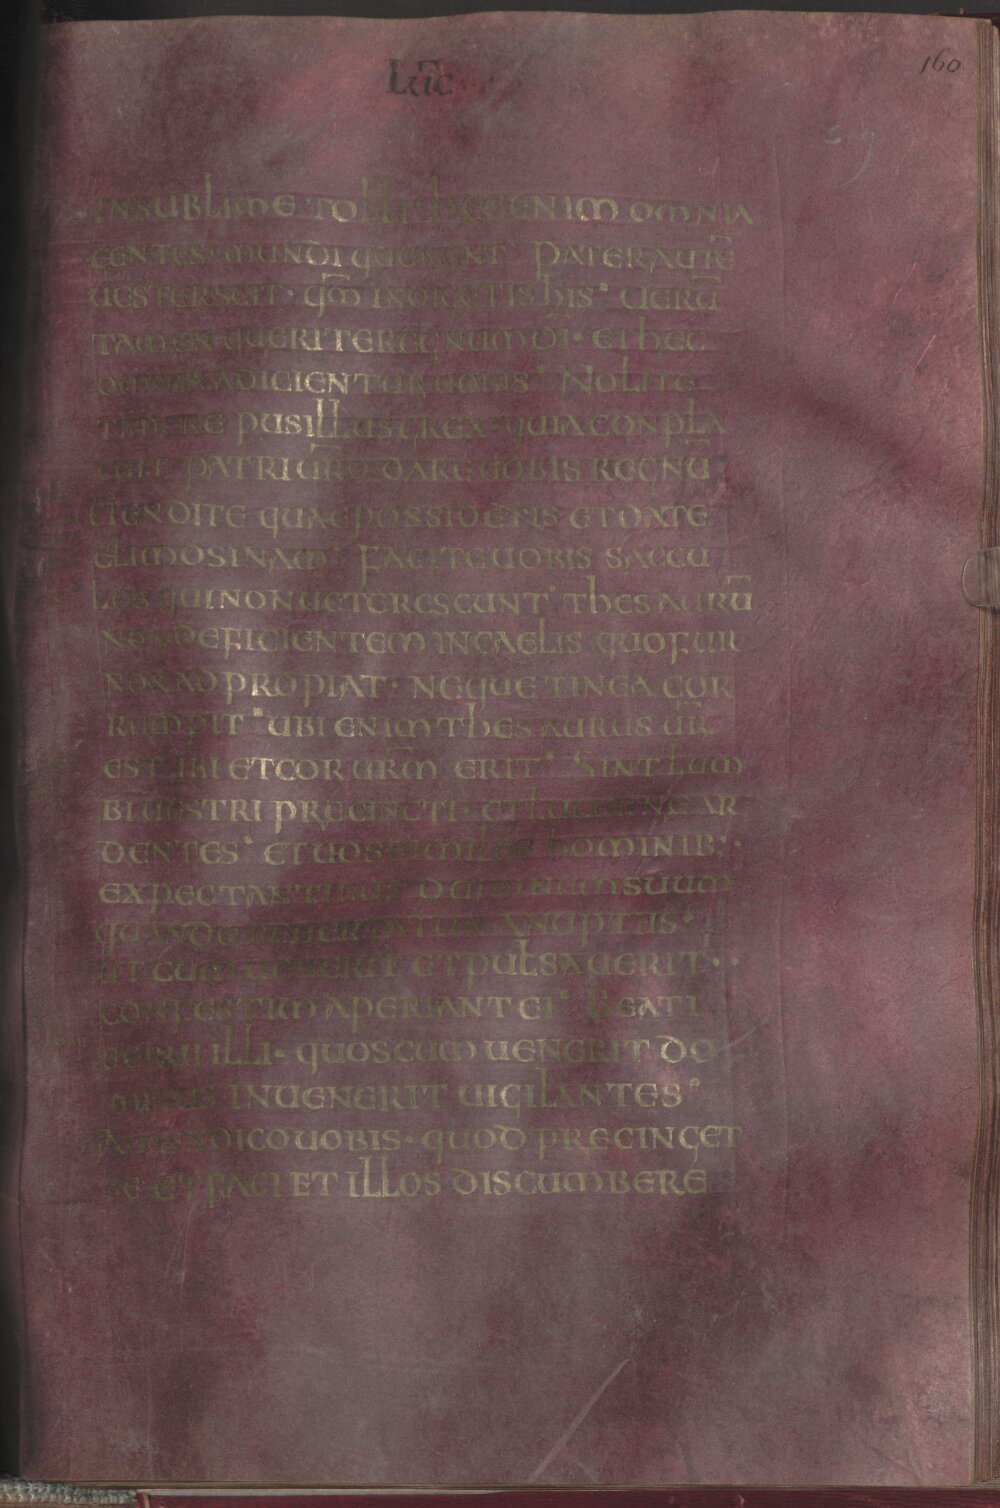 160
Luc
IN SUBLIME TOLLI· hEC ENIM OMNIA
GENTES· MUNDI QUERUNT· PATER AUTĒ
UESTER SCIT· QM̄ INDIGETIS hIS· UERŪ
TAMEN QUERITE REGNUM DĪ· ET hEC
OMNIA ADICIENTUR UOBIS· NOLITE
TIMERE PUSILLUS GREX· QUIA CONPLA
CUIT PATRI UR̄O DARE UOBIS REGNŪ
UENDITE QUAE POSSIDETIS ET DATE
ELIMOSINAM· FACITE UOBIS SACCU
LOS QUI NON UETERESCUNT· ThESAURŪ
NON DEFICIENTEM IN CAELIS QUO FUR
NON ADPROPIAT· NEQUE TINEA COR
RUMPIT· UBI ENIM ThESAURUS UR̄
EST IBI ET COR UR̄M ERIT· SINT LUM
BI UESTRI PRECINCTI· ET LUCERNE AR
DENTES· ET UOS SIMILES hOMINIB;·
EXPECTANTIBUS DOMINUM SUUM
QUANDO REUERTATUR A NUPTIIS·
UT CUM UENERIT ET PULSAUERIT··
CONFESTIM APERIANT EI· BEATI
SERUI ILLI· QUOS CUM UENERIT DO
MINUS INUENERIT UIGILANTES·
AMEN DICO UOBIS· QUOD PRECINGET
SE ET FACIET ILLOS DISCUMBERE